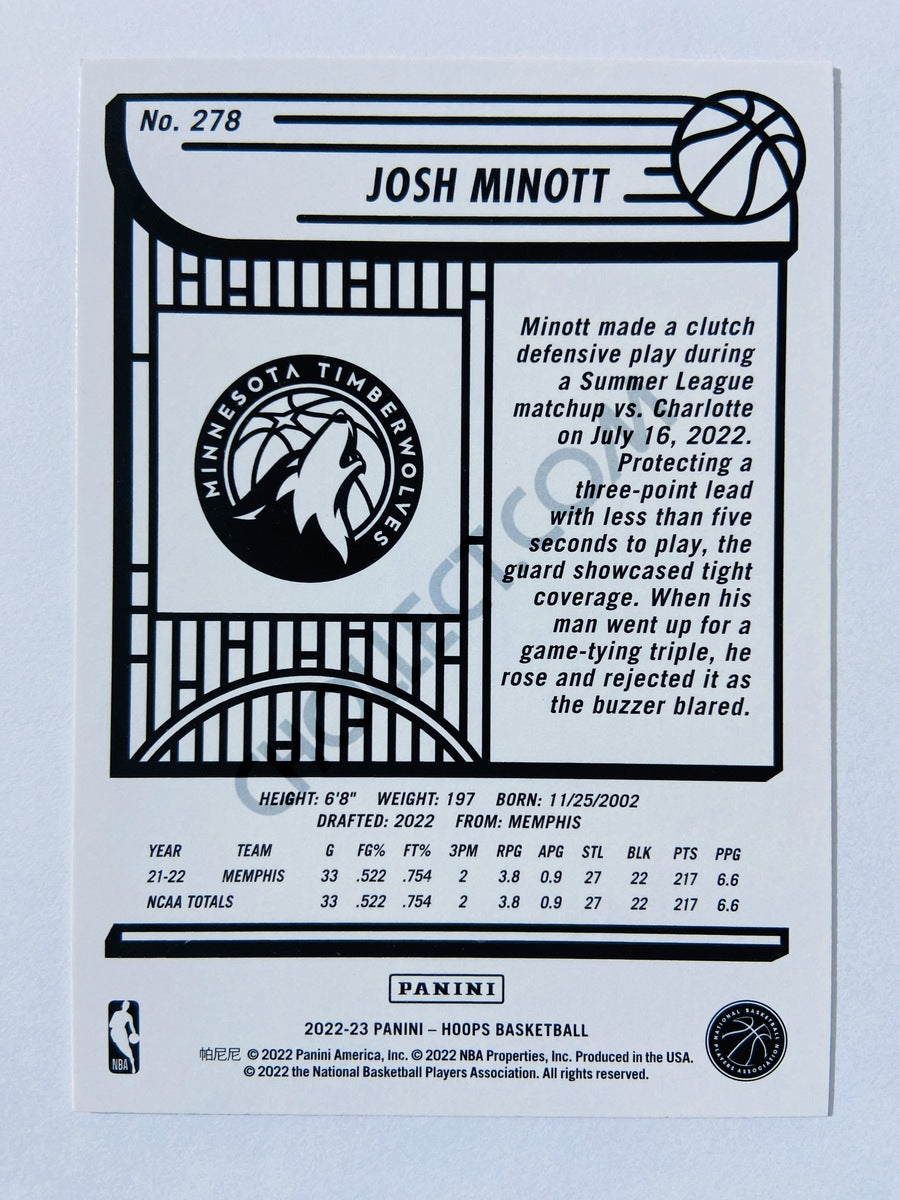 No. 278
JOSH MINOTT
MINNESOTA TIMBERWOLVES
Minott made a clutch
defensive play during
a Summer League
matchup vs. Charlotte
on July 16, 2022.
Protecting a
three-point lead
with less than five
seconds to play, the
guard showcased tight
coverage. When his
man went up for a
game-tying triple, he
rose and rejected it as
the buzzer blared.
CHOLLECT.COM
HEIGHT: 6'8" WEIGHT: 197 BORN: 11/25/2002
DRAFTED: 2022 FROM: MEMPHIS
YEAR TEAM G FG% FT% 3PM RPG APG STL BLK PTS PPG
21-22 MEMPHIS 33 .522 .754 2 3.8 0.9 27 22 217 6.6
NCAA TOTALS 33 .522 .754 2 3.8 0.9 27 22 217 6.6
PANINI
2022-23 PANINI – HOOPS BASKETBALL
帕尼尼 © 2022 Panini America, Inc. © 2022 NBA Properties, Inc. Produced in the USA.
© 2022 the National Basketball Players Association. All rights reserved.
NBA
NATIONAL BASKETBALL
PLAYERS ASSOCIATION